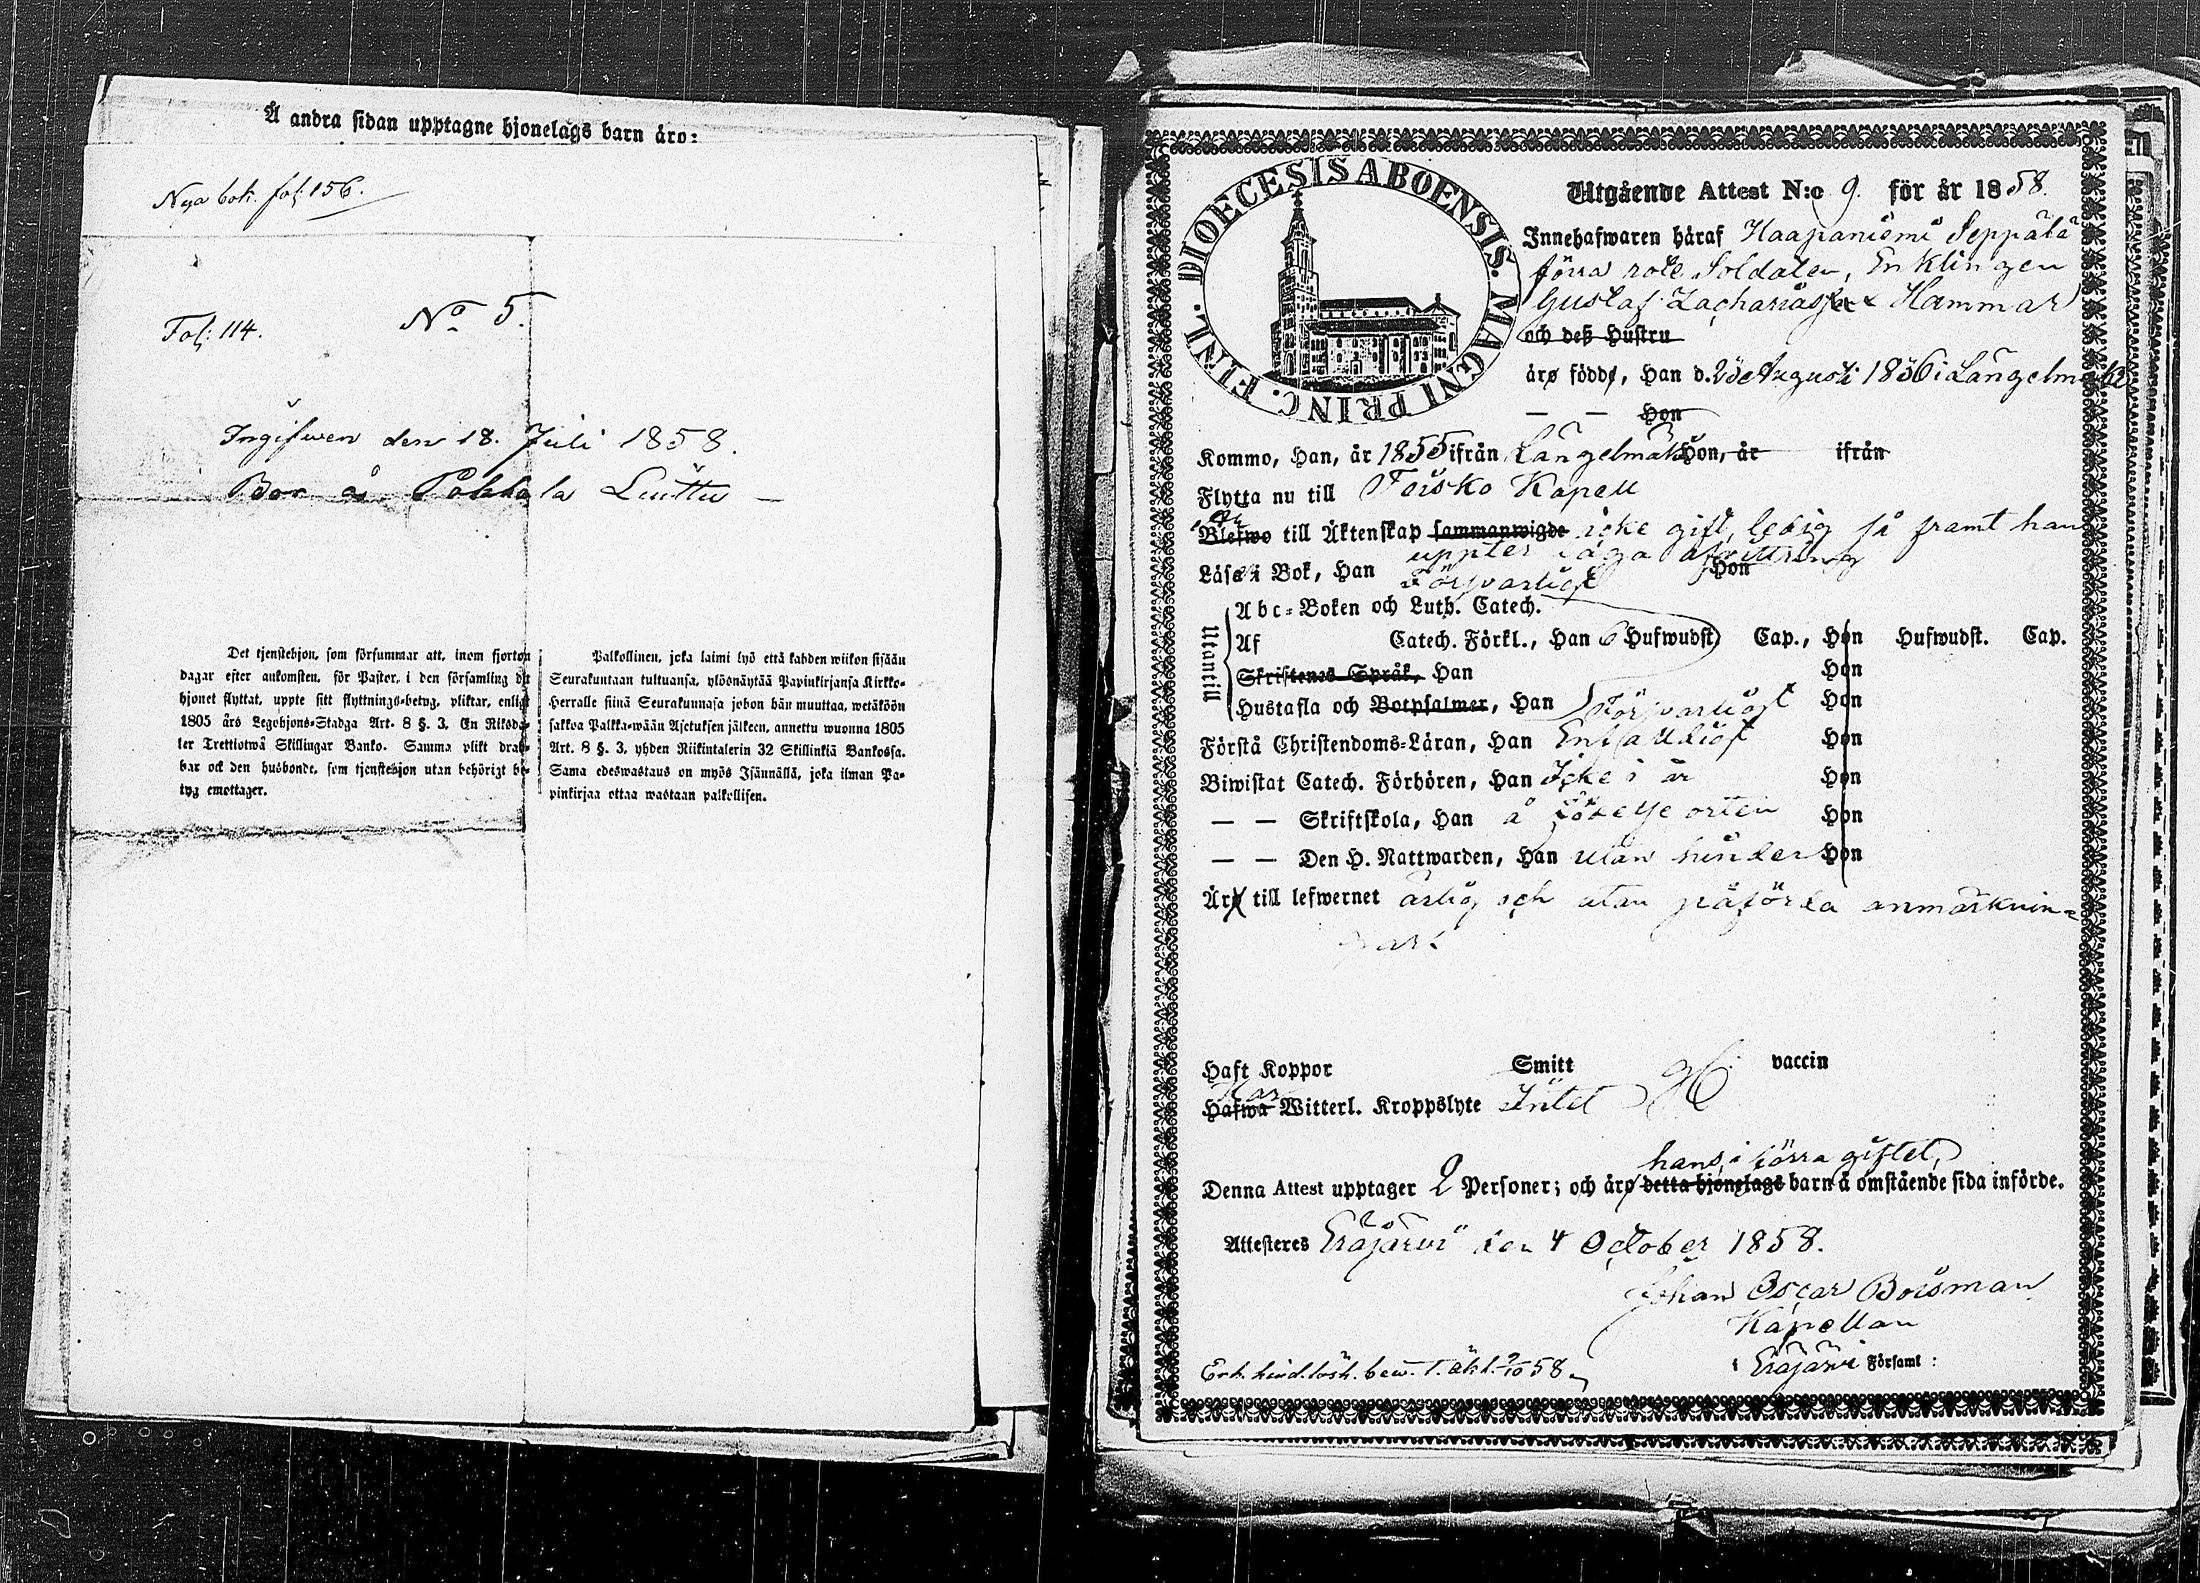 Å andra sidan upptagne hjonelags barn äro:
Nya bok. fol. 156.
Fol: 114.
No 5.
Ingifwen den 18. Juli 1858.
Bor å Pohtola Luuttu —
Det tjenstehjon, som försummar att, inom fjorton
dagar efter ankomsten, för Pastor, i den församling dit
hjonet flyttat, uppte sitt flyttnings-betyg, pliktar, enligt
1805 års Legohjons-Stadga Art. 8 §. 3. En Riksda-
ler Trettiotwå Skillingar Banko. Samma plikt drab-
bar ock den husbonde, som tjenstehjon utan behörigt be-
tyg emottager.
Palkollinen, joka laimi lyö että kahden wiikon sisään
Seurakuntaan tultuansa, ylöönäytää Papinkirjansa Kirkko-
Herralle siinä Seurakunnasa johon hän muuttaa, wetäköön
sakkoa Palkka-wään Asetuksen jälkeen, annettu wuonna 1805
Art. 8 §. 3, yhden Riikintalerin 32 Skillinkiä Bankossa.
Sama edeswastaus on myös Isännällä, joka ilman Pa-
pinkirjaa ottaa wastaan palkollisen.
DIOECESIS ABOENSIS. MAGNI PRINC. FINL.
Utgående Attest N:o 9. för år 1858.
Innehafwaren häraf Haapaniemi Seppälä
förra rote Soldaten, Enklingen
Gustaf Zachariasson Hammar
och deß Hustru
äro födde, Han d. Augusti 1836 i Längelmäki
— — Hon
Kommo, Han, år 1855 ifrån Längelmäki Hon, år ifrån
Flytta nu till Teisko Kapell
Blefwo till Äktenskap sammanwigde icke gift, ledig så framt han
uppter laga afwittring
Läsa i Bok, Han Förswarligt Hon
Utantill
Abc-Boken och Luth. Catech.
Af Catech. Förkl., Han 6 Hufwudst. Cap., Hon Hufwudst. Cap.
Skriftenes Språk, Han Hon
Hustafla och Botpsalmer, Han Förswarligt Hon
Förstå Christendoms-Läran, Han Enfalldigt Hon
Biwistat Catech. Förhören, Han Icke i år Hon
— — Skriftskola, Han å födelse orten Hon
— — Den H. Nattwarden, Han utan hinder Hon
Äro till lefwernet ärlig och utan påförda anmärknin-
gar.
Haft Koppor Smitt vaccin
Har
Hafwa Witterl. Kroppslyte Intet
hans i förra giftet,
Denna Attest upptager 2 Personer; och äro detta hjonelags barn å omstående sida införde.
Attesteres Eräjärwi den 4 October 1858.
Johan Oscar Boisman
Kapellan
i Eräjärwi Församl:
Erh. hind.lösh. bew. t. äkt. 58.